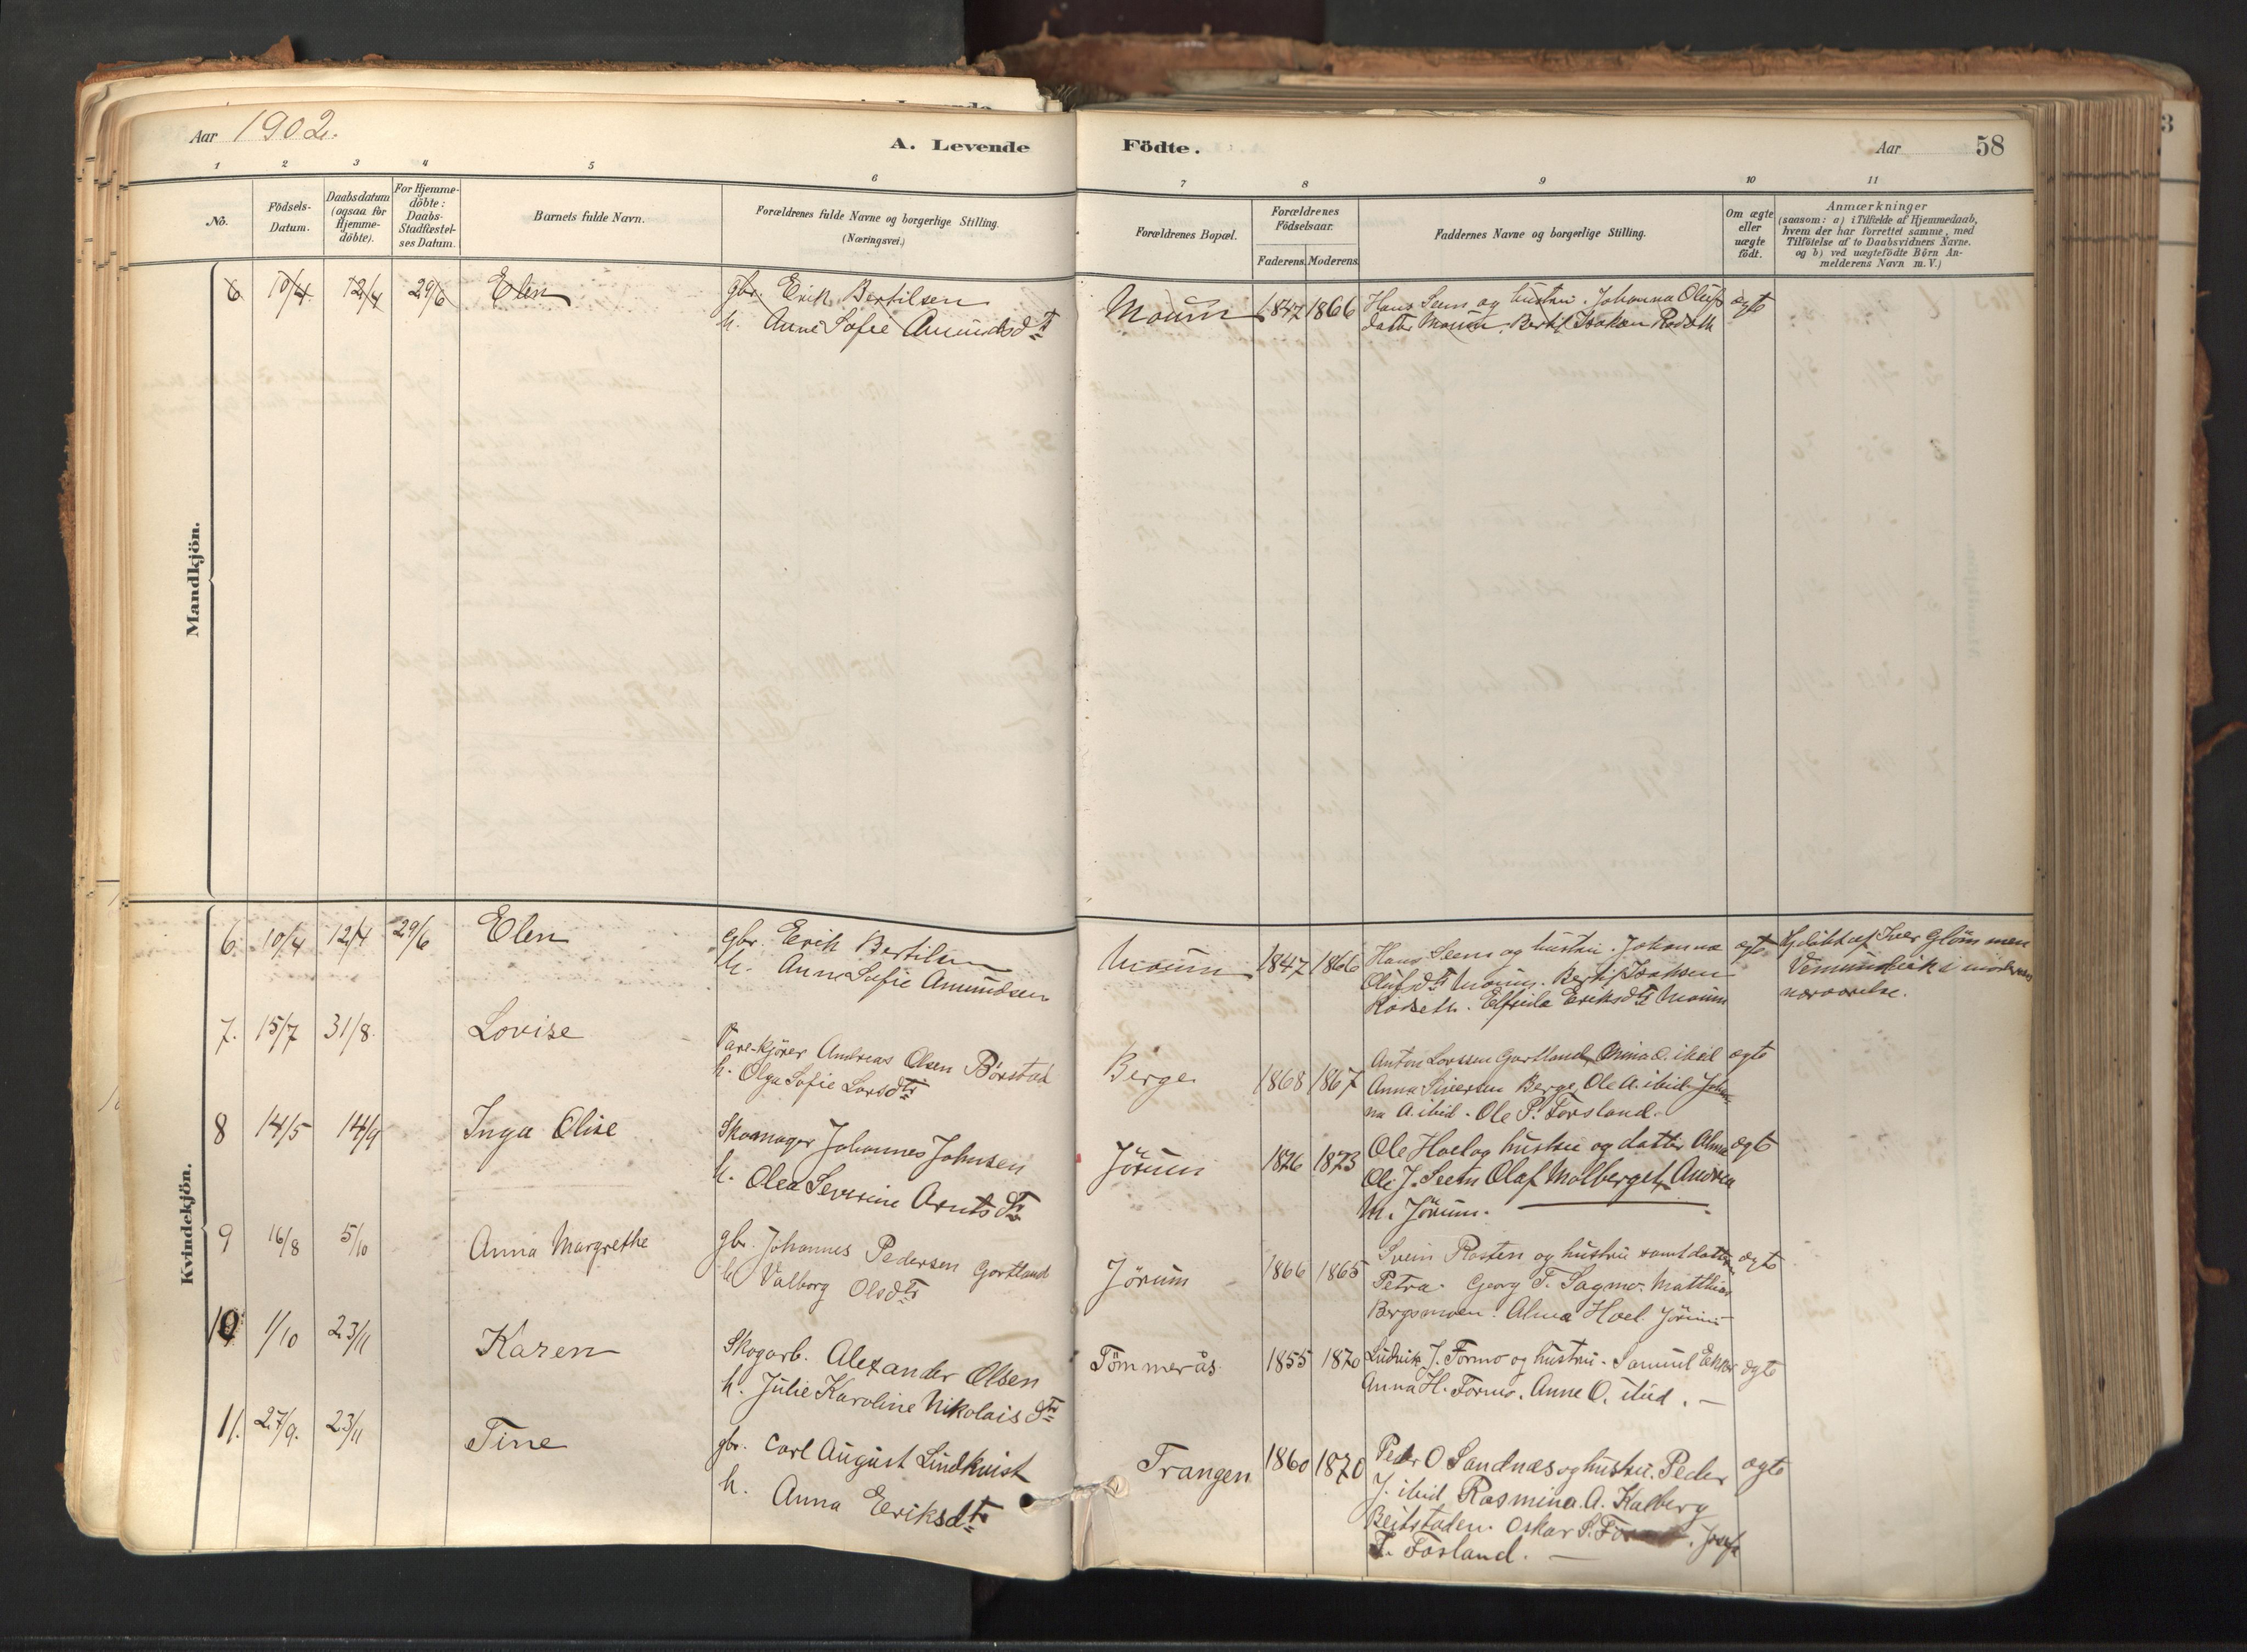 Aar 1902.
A. Levende
Födte.
Aar
58
3
1 2 3 4 5 6
7 8 9 10 11
No.
Födsels-
Datum.
Daabsdatum
(ogsaa for
Hjemme-
döbte).
For Hjemme-
döbte:
Daabs-
Stadfæstel-
ses Datum.
Barnets fulde Navn.
Forældrenes fulde Navne og borgerlige Stilling.
(Næringsvei.)
Forældrenes Bopæl.
Forældrenes
Födselsaar.
Faderens. Moderens.
Faddernes Navne og borgerlige Stilling.
Om ægte
eller
uægte
födt.
Anmærkninger
(saasom: a) i Tilfælde af Hjemmedaab,
hvem der har forrettet samme, med
Tilföielse af to Daabsvidners Navne.
og b) ved uægtefödte Börn An-
melderens Navn m. V.)
Mandkjön.
6 10/4 12/4 29/6 Elen
gbr. Erik Bertilsen
h. Anne Sofie Amundsdtr
Moum 1847 1866
Hans Seem og hustru. Johanna Olufs
datter Moum. Bertil Isaksen Rodseth
ægte
Kvindekjön.
6. 10/4 12/4 29/6 Elen
gbr. Erik Bertilsen
h. Anne Sofie Amundsen
Moum 1847 1866
Hans Seem og hustru. Johanna
Olufsdtr Moum. Bertil Isaksen
Rodseth. Elfrida Eriksdtr Moum
ægte
Hj.döbt af Iver Glömmen
Vemundvik i moderens
nærværelse.
7. 15/7 31/8. Lovise
Vare-kjörer Andreas Olsen Börstad
h. Olga Sofie Larsdtr
Berge 1868 1867
Anton Larssen Gartland, Mina O. ibid
Anna Sivertsen Berge, Ole A. ibid. Johan-
na A. ibid. Ole P. Forsland.
ægte
8 14/5 14/9 Inga Elise
Skomager Johannes Johnsen
h. Olea Severine Arntsdtr
Jörum 1826 1873
Ole Hoel og hustru og datter Alma
Ole J. Seem Olaf Molberget, Andrea
M. Jörum.
ægte
9 16/8 5/10 Anna Margrethe
gbr. Johannes Pedersen Gartland
h Valborg Olsdtr
Jörum 1866 1865
Svein Rosten og hustru samt datter
Petra. Georg T. Sagmo. Matthias
Bergsmoen. Alma Hoel. Jörum
ægte
10 1/10 23/11 Karen
Skogarb. Alexander Olsen
h. Julie Karoline Nikolaisdtr
Tömmerås 1855 1870
Ludvik J. Formo og hustru. Samuel Ekker
Anna H. Formo. Anne O. ibid.
ægte
11. 27/9. 23/11 Tine
gbr. Carl August Lindkvist
h. Anna Eriksdtr
Trangen 1860 1870
Peder O Sandnæs og hustru. Peder
J. ibid Rasmina A. Kalberg
Beitstaden. Oskar S.
J. Fosland.
ægte